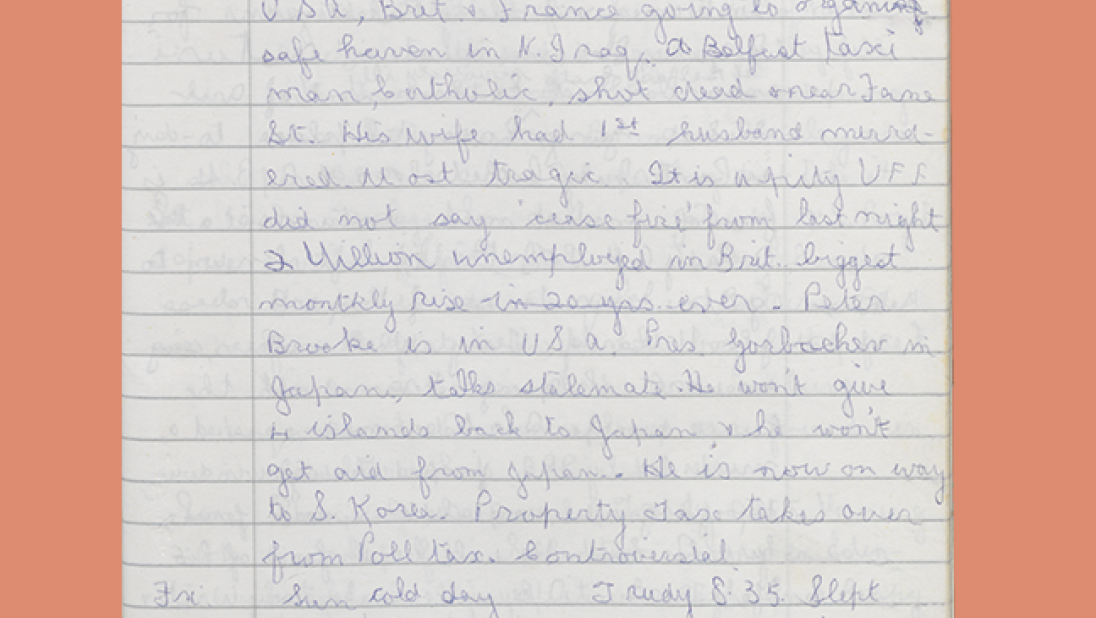 USA, Brit. & France going to organise
safe haven in N. Iraq. A Belfast taxi
man, Catholic, shot dead near Fane
St. His wife had 1st husband murd-
ered. Most tragic. It is a pity UFF
did not say 'cease fire' from last night
2 Million unemployed in Brit. biggest
monthly rise in 20 yrs. ever. Peter
Brooke is in USA. Pres. Gorbachev in
Japan, talks stalemate. He won't give
4 islands back to Japan & he won't
get aid from Japan. He is now on way
to S. Korea. Property Tax takes over
from Poll tax. Controversial.
Fri. Sun cold day Trudy 8.35. Slept